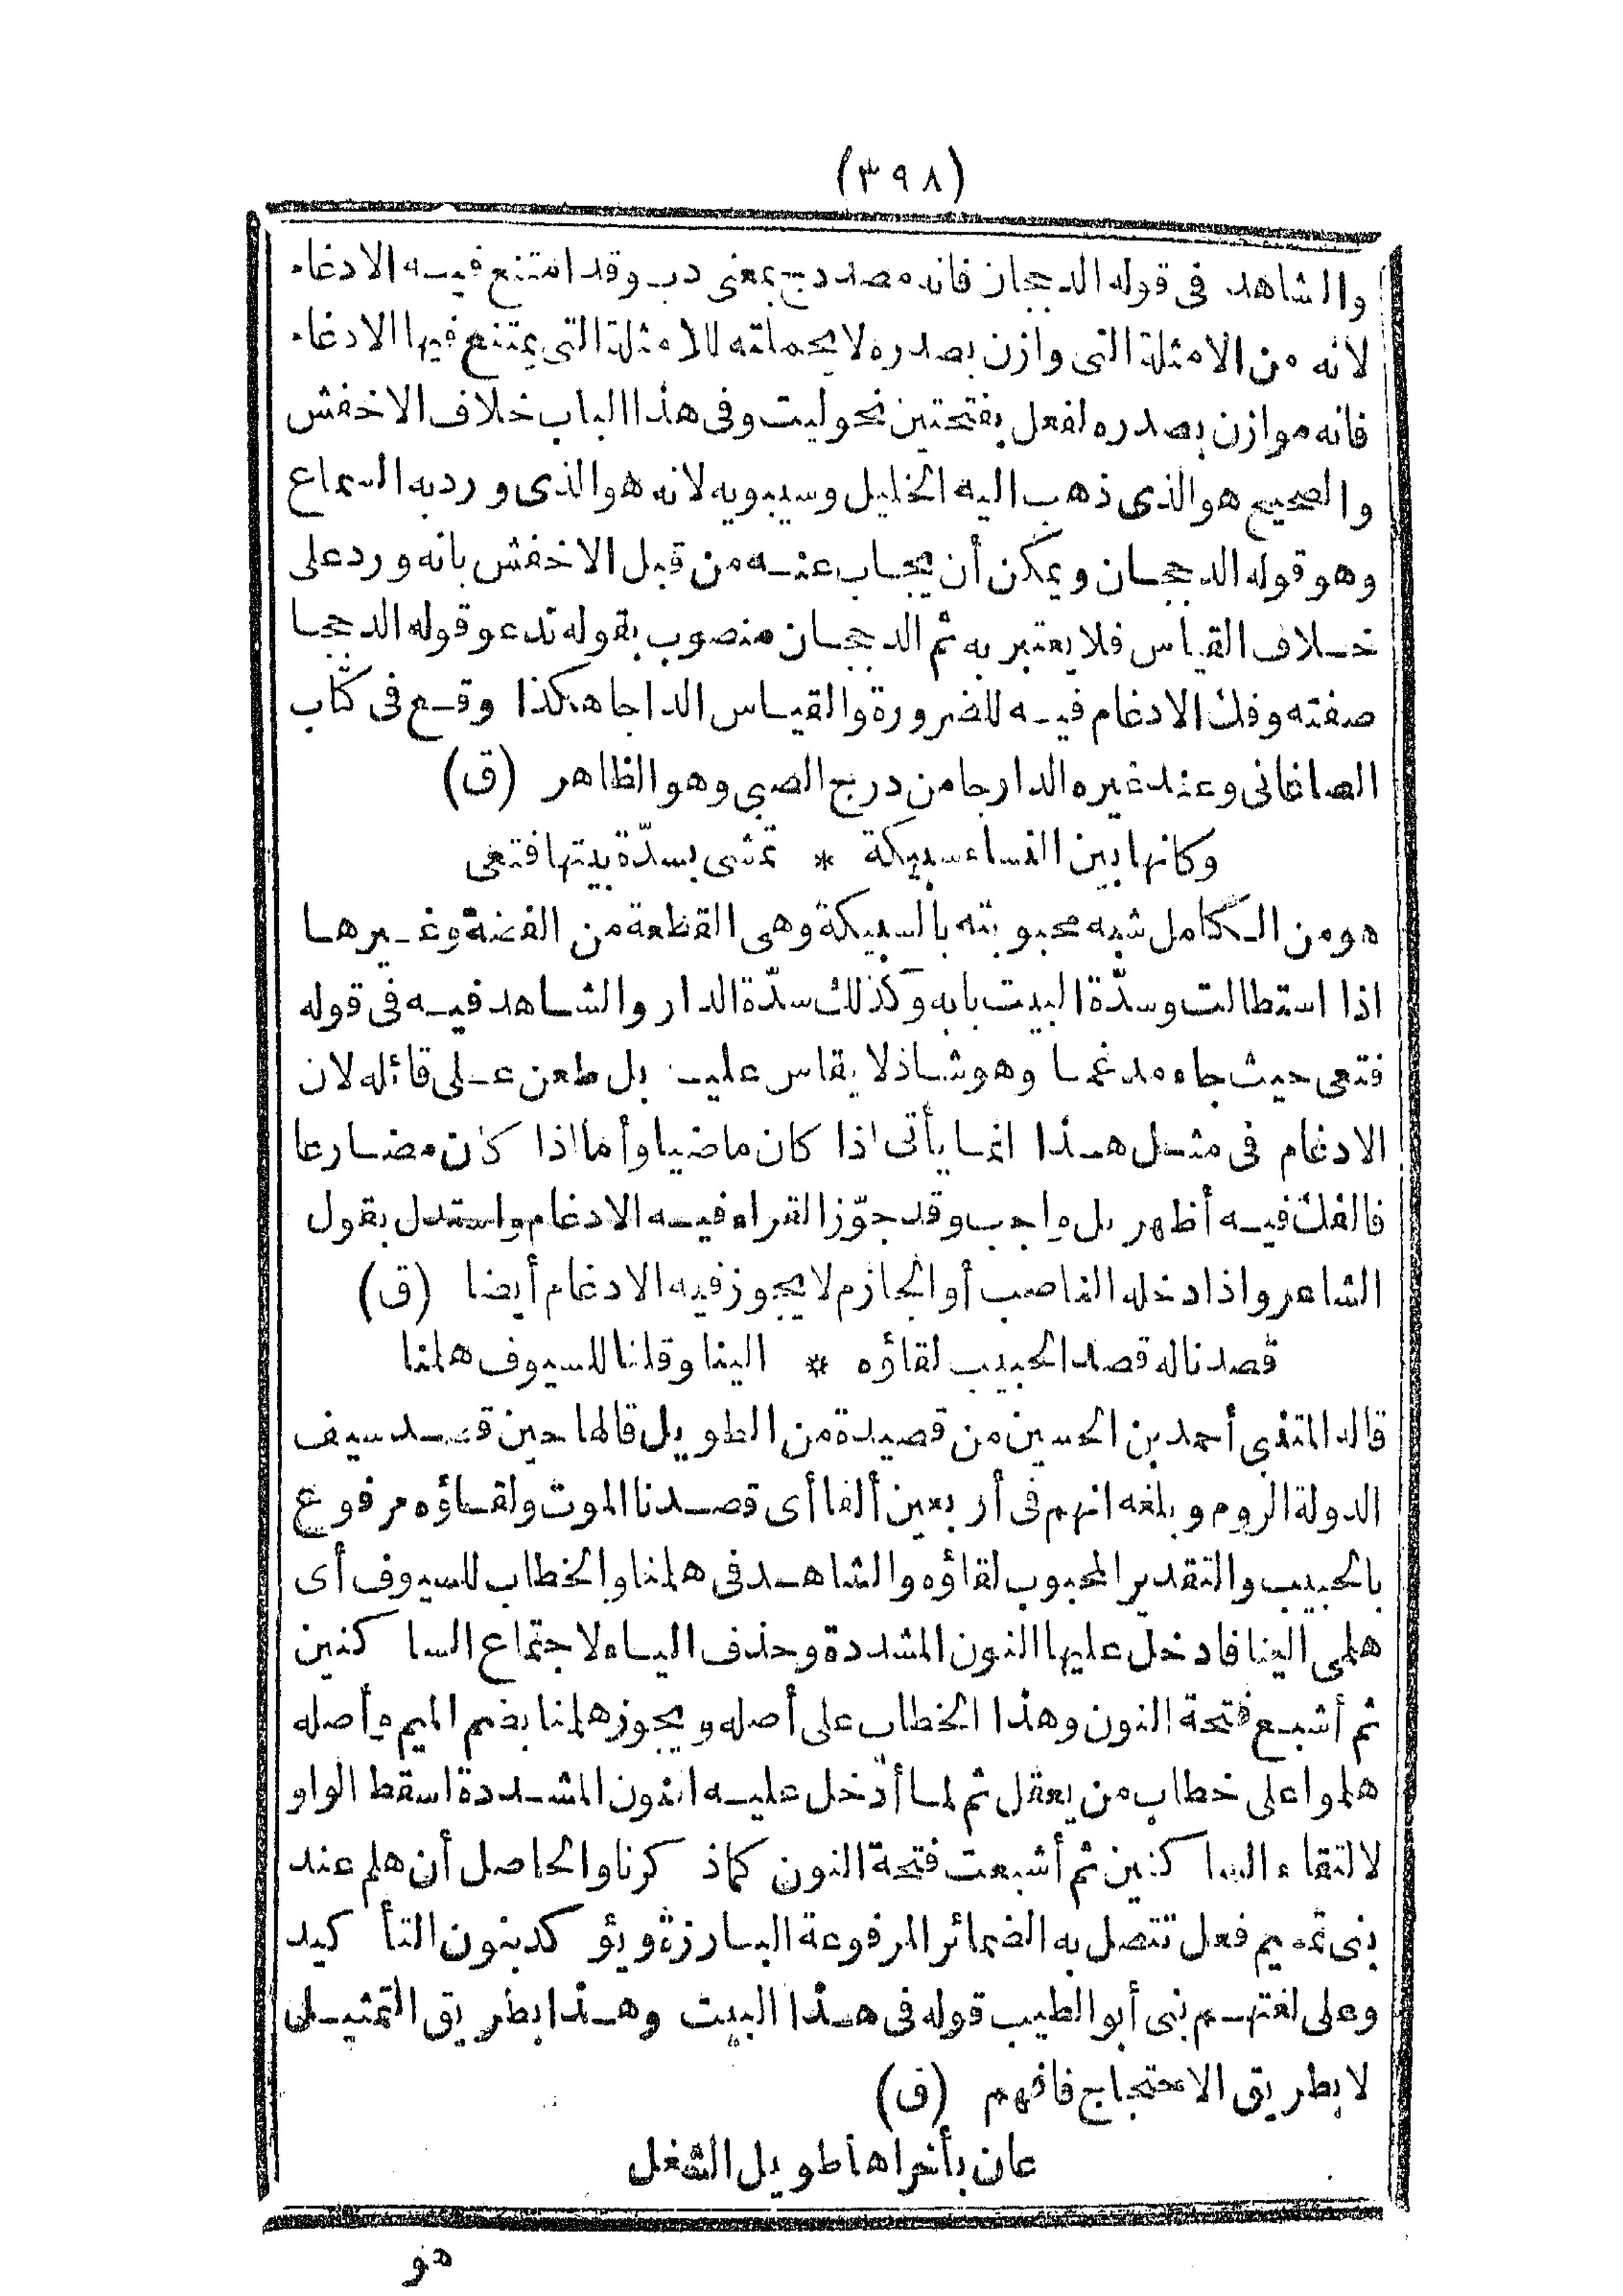 (٣٩٨)
والشاهد فى قوله الدججان فانه مصدر دج بمعنى دب وقد امتنع فيه الادغام
لانه من الامثلة التى وازن بصدره لا بجملته للامثلة التى يمتنع فيها الادغام
فانه موازن بصدره لفعل بفتحتين نحو لبب وفى هذا الباب خلاف الاخفش
والصحيح هو الذى ذهب اليه الخليل وسيبويه لانه هو الذى ورد به السماع
وهو قوله الدججان ويمكن أن يجاب عنه من قبل الاخفش بانه ورد على
خلاف القياس فلا يعتبر به ثم الدججان منصوب بقوله تدعو وقوله الدججا
صفته وفك الادغام فيه للضرورة والقياس الداجا هكذا وقع فى كتاب
الصاغانى وعند غيره الدارجا من درج الصبى وهو الظاهر (ق)
وكانها بين النساء سبيكة * تمشى بسدّة بيتها فتعى
هو من الكامل شبه محبوبته بالسبيكة وهى القطعة من الفضة وغيرها
اذا استطالت وسدّة البيت بابه وكذلك سدّة الدار والشاهد فيه فى قوله
فتعى حيث جاء مدغما وهو شاذ لا يقاس عليه بل طعن على قائله لان
الادغام فى مثل هذا انما يأتى اذا كان ماضيا وأما اذا كان مضارعا
فالفك فيه أظهر بل واجب وقد جوّز الفراء فيه الادغام واستدل بقول
الشاعر واذا دخله الناصب أو الجازم لا يجوز فيه الادغام أيضا (ق)
قصدنا له قصد الحبيب لقاؤه * الينا وقلنا للسيوف هلمنا
قاله المتنبى أحمد بن الحسين من قصيدة من الطويل قالها حين قصد سيف
الدولة الروم وبلغه انهم فى أربعين ألفا أى قصدنا الموت ولقاؤه مرفوع
بالحبيب والتقدير المحبوب لقاؤه والشاهد فى هلمنا والخطاب للسيوف أى
هلمى الينا فادخل عليها النون المشددة وحذف الياء لاجتماع الساكنين
ثم أشبع فتحة النون وهذا الخطاب على أصله ويجوز هلمنا بضم الميم وأصله
هلموا على خطاب من يعقل ثم لما أدخل عليه النون المشددة اسقط الواو
لالتقاء الساكنين ثم أشبعت فتحة النون كماذكرنا والحاصل أن هلم عند
بنى تميم فعل تتصل به الضمائر المرفوعة البارزة ويؤكد بنون التأكيد
وعلى لغتهم بنى أبو الطيب قوله فى هذا البيت وهذا بطريق التمثيل
لا بطريق الاحتجاج فافهم (ق)
عان بأخراها طويل الشغل
هو